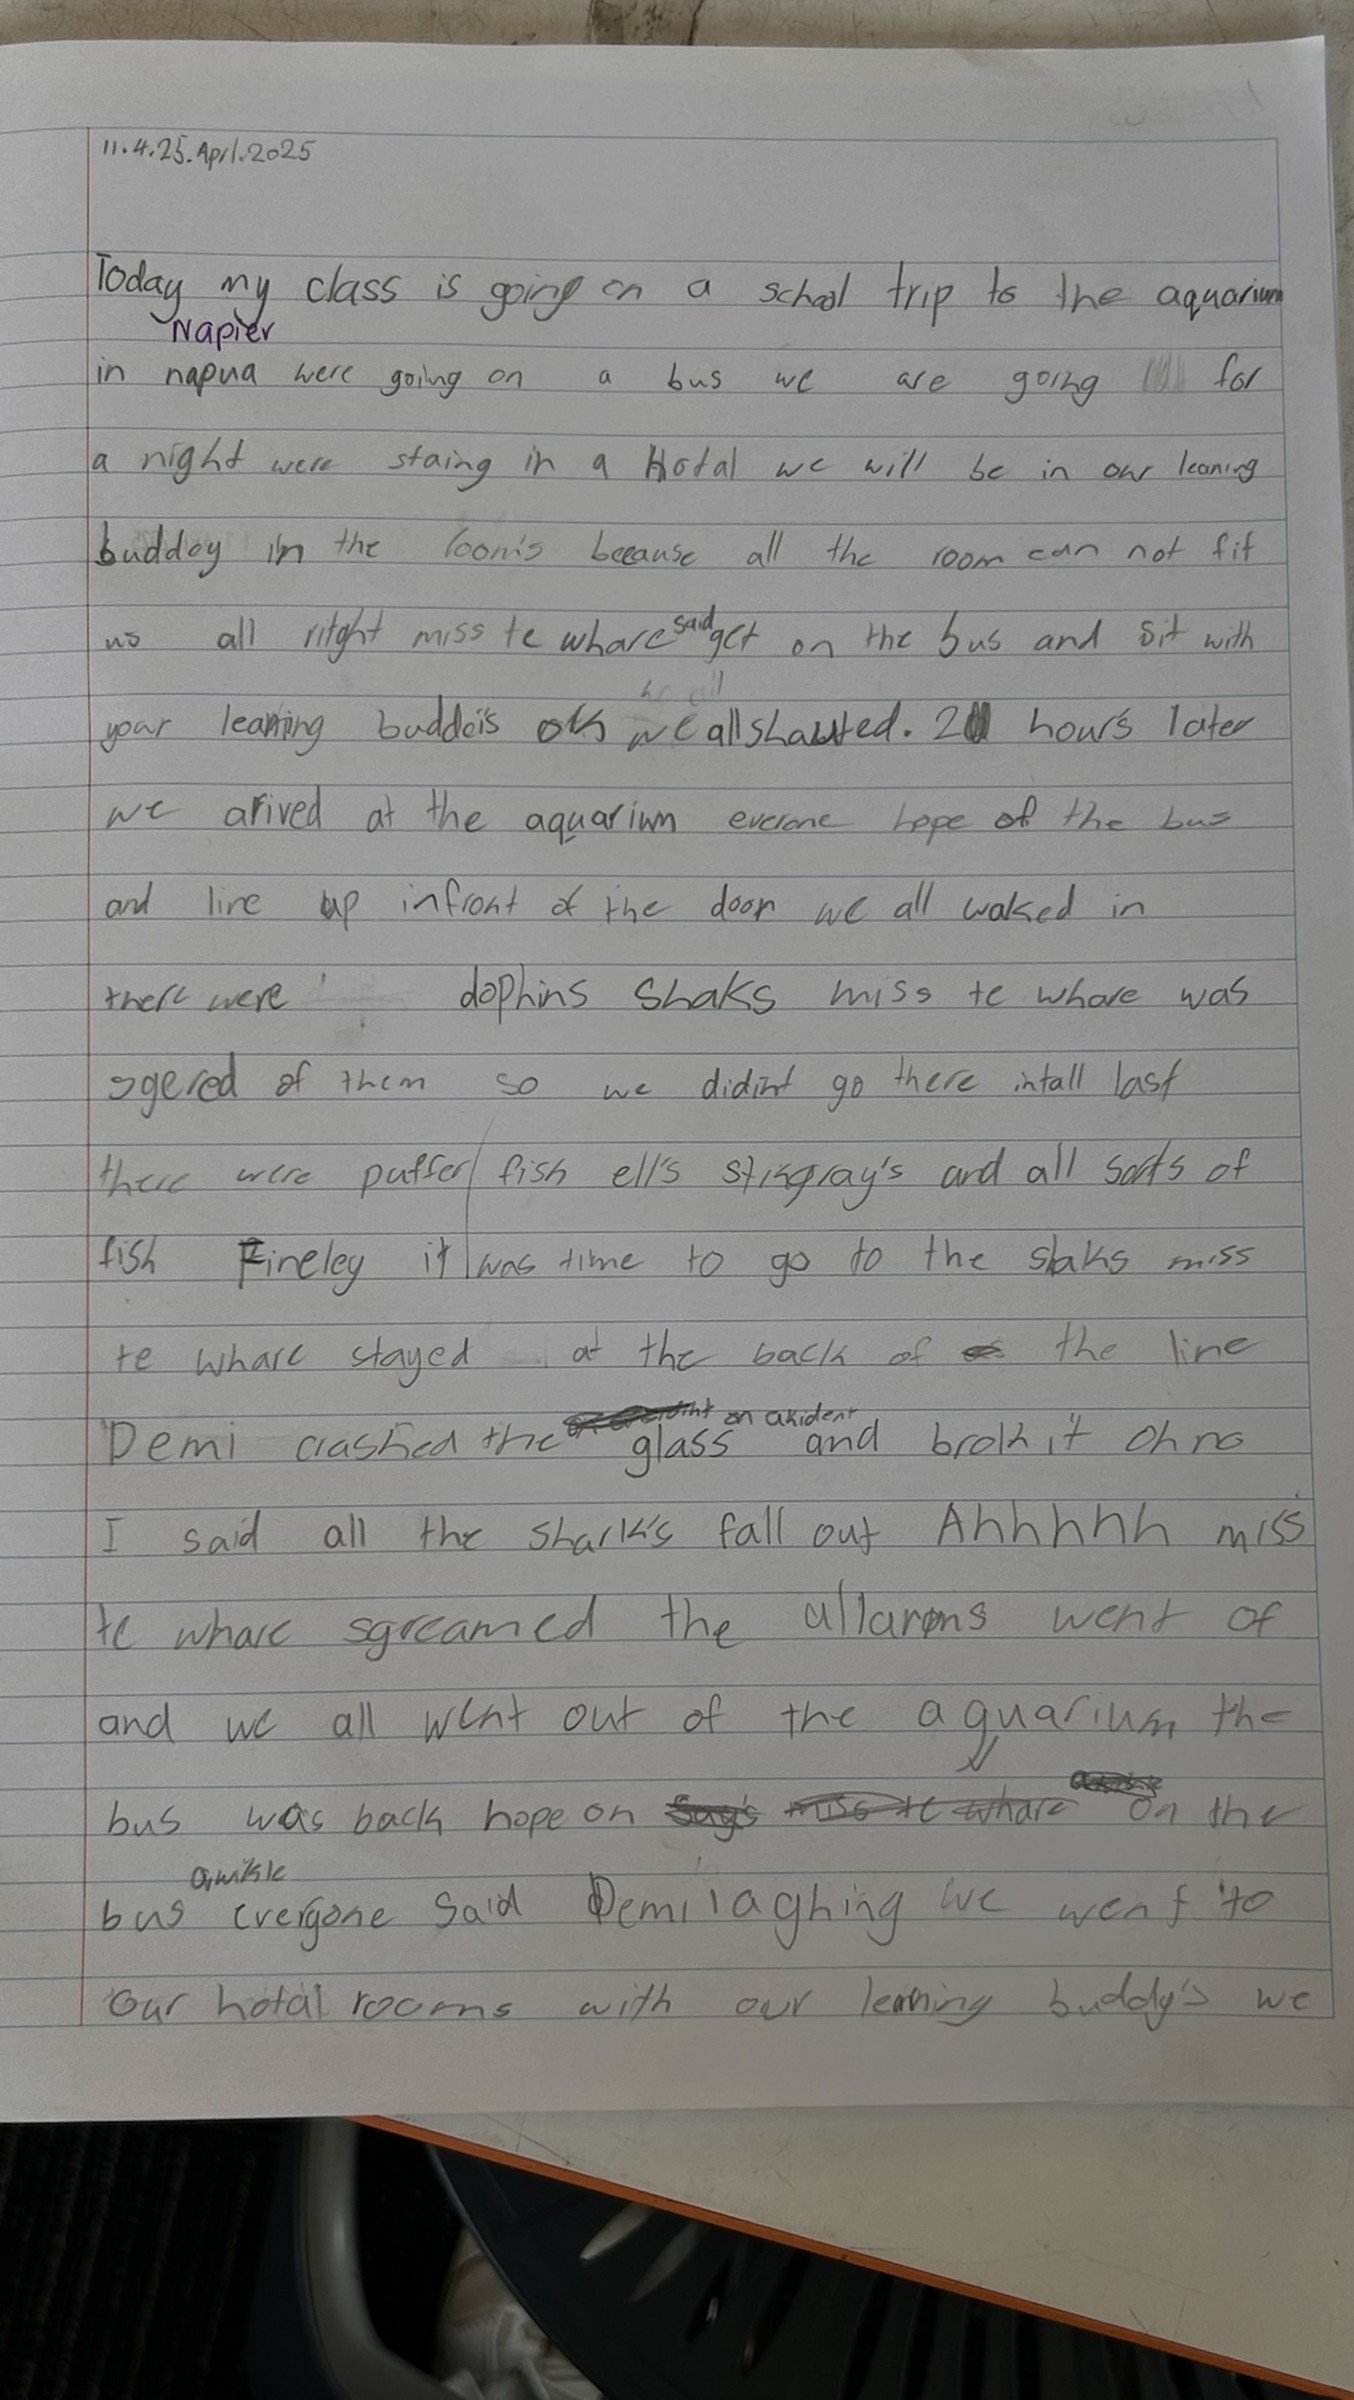 11.4.25.April.2025
Today my class is going on a school trip to the aquarium
Napier
in napua were going on a bus we are going for
a night were staing in a Hotal we will be in our leaning
buddoy in the room's because all the room can not fit
us all ritght miss te whare said get on the bus and sit with
your learning buddeis ok we all shauted. 2 hour's later
we arived at the aquarium everone hope of the bus
and line up infront of the door we all waked in
there were dophins shaks miss te whare was
sgered of them so we didint go there intall last
there were puffer fish ell's stingray's and all sorts of
fish Fineley it was time to go to the shaks miss
te whare stayed at the back of the line
on akident
Demi crashed the glass and brok it oh no
I said all the shark's fall out Ahhhhhh miss
te whare sgreamed the allarms went of
and we all went out of the aquarium the
bus was back hope on on the
qwikle
bus everyone said Demi laghing we went to
our hotal rooms with our learning buddy's we